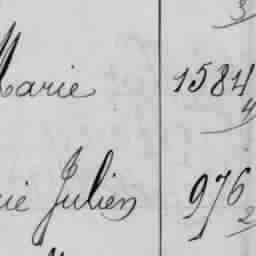 3
Marie 1584
4
ie Julien 976
2